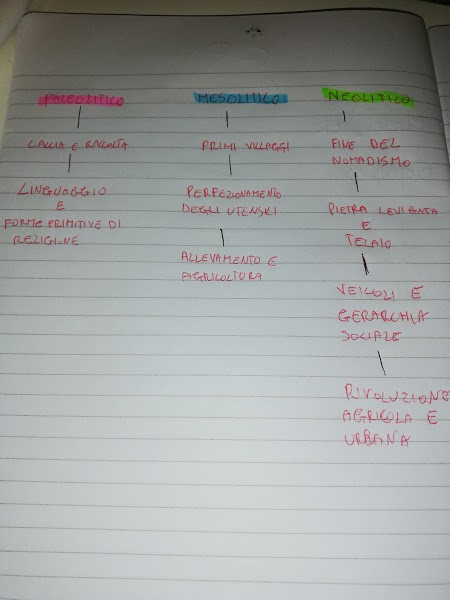 PALEOLITICO
CACCIA E RACCOLTA
LINGUAGGIO
E
FORME PRIMITIVE DI
RELIGIONE
MESOLITICO
PRIMI VILLAGGI
PERFEZIONAMENTO
DEGLI UTENSILI
ALLEVAMENTO E
AGRICOLTURA
NEOLITICO
FINE DEL
NOMADISMO
PIETRA LEVIGATA
E
TELAIO
VEICOLI E
GERARCHIA
SOCIALE
RIVOLUZIONE
AGRICOLA E
URBANA